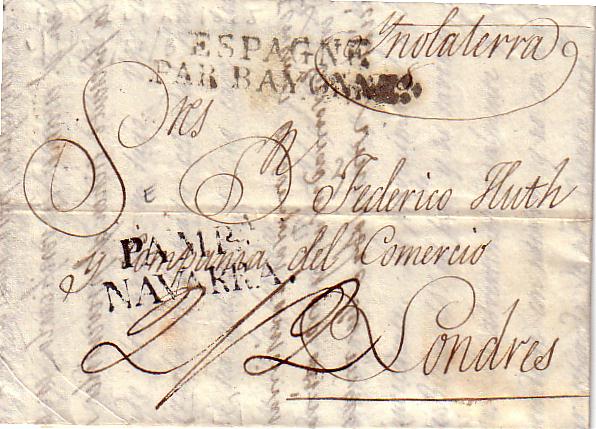 Ynglaterra
ESPAGNE
PAR BAYONNE
Sres
Dn Federico Huth
y Compania del Comercio
PAMPA
NAVARRA.
2/2
Londres